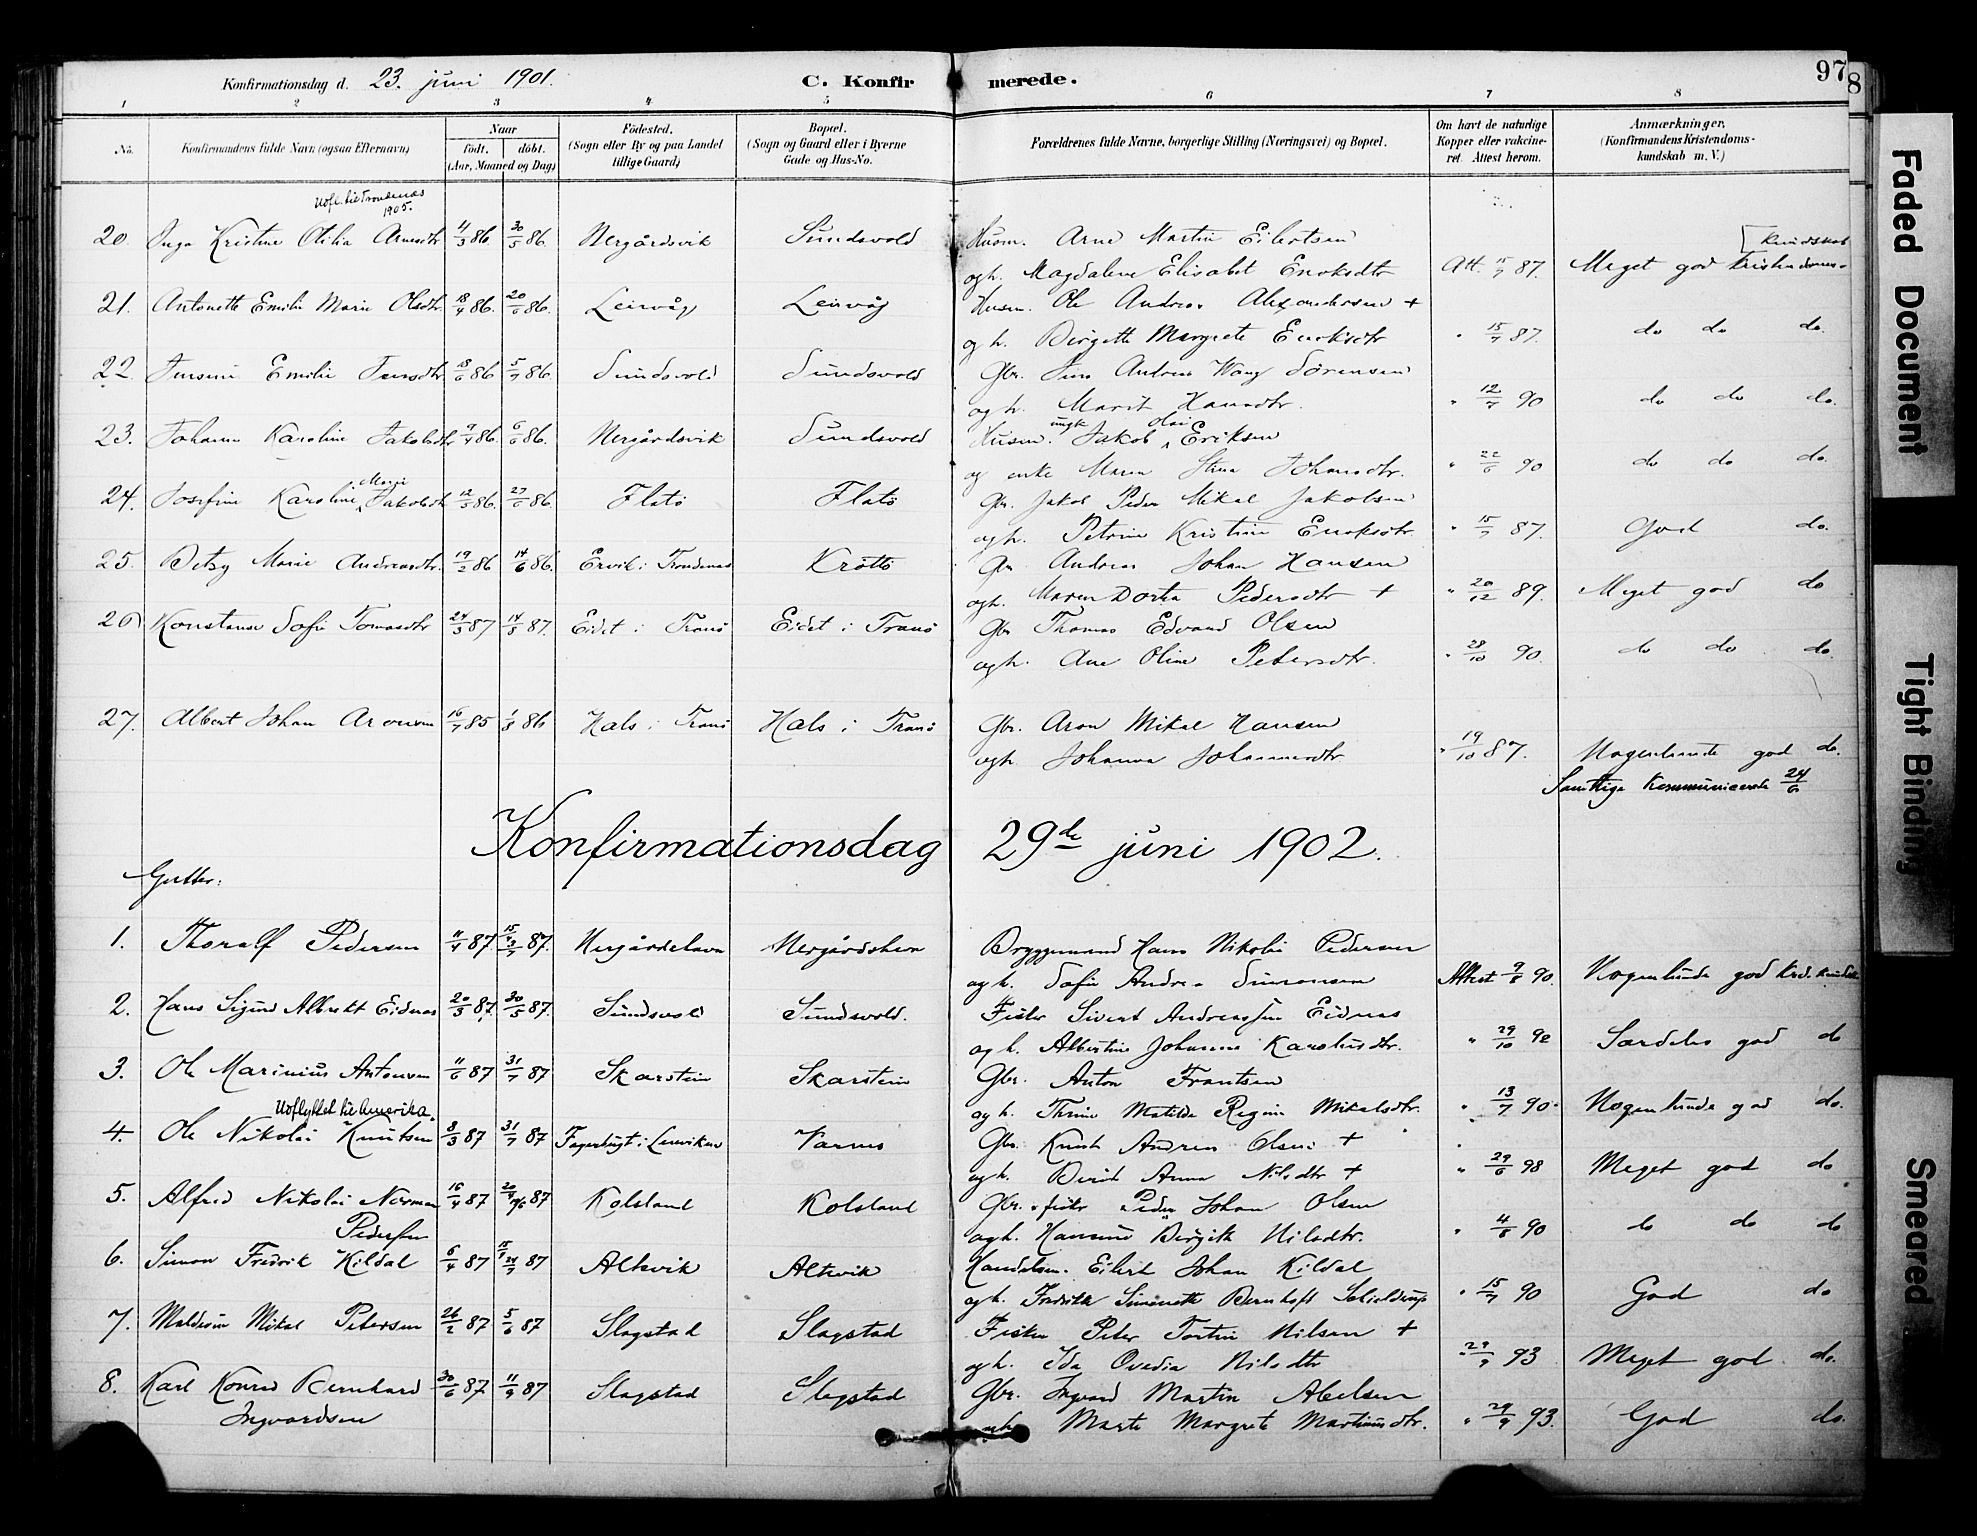 Konfirmationsdag d. 23. juni 1901. C. Konfirmerede. 97
8
1 2 3 4 5 6 7 8
No. Konfirmandens fulde Navn (ogsaa Efternavn) Naar født. døbt. (Aar, Maaned og Dag) Fødested. (Sogn eller By og paa Landet tillige Gaard) Bopæl. (Sogn og Gaard eller i Byerne Gade og Hus-No. Forældrenes fulde Navne, borgerlige Stilling (Næringsvei) og Bopæl. Om havt de naturlige Kopper eller vakcineret. Attest herom. Anmærkninger, (Konfirmandens Kristendomskundskab m. V.)
Udfl. til Trondenæs
1905.
20. Inga Kristine Otilia Arnesdtr 4/3 86. 30/5 86. Nergårdsvik Sundsvold Husm. Arne Martin Eilertsen
og h. Magdalene Elisabet Enoksdtr Att. 15/7 87. Meget god Kristendoms- kundskab
21. Antonette Emilie Marie Olsdtr. 18/4 86. 20/6 86. Leirvåg Leirvåg Husm. Ole Andreas Alexandersen +
og h. Birgitte Margrete Enoksdtr " 15/7 87. do do do.
22. Jensine Emilie Jensdtr 18/6 86 5/7 86. Sundsvold Sundsvold Gbr. Jens Andreas Wang Sørensen
og h. Marit Hansdtr. " 12/7 90 do do do.
23. Johanne Karoline Jakobsdtr 9/4 86. 6/6 86. Nergårdsvik Sundsvold Husm. ungk. Jakob Olai Eriksen
og enke Maren Stina Johansdtr. " 22/6 90 do do do.
24. Josefine Karoline Marie Jakobsdtr 12/5 86. 27/6 86. Flatö Flatö Gbr. Jakob Peder Mikal Jakobsen
og h. Petrine Kristine Enoksdtr " 15/7 87. God do.
25. Betzy Marie Andreasdtr. 19/2 86 14/6 86. Ervik i Trondenæs Kröttö Gbr Andreas Johan Hansen
og h. Maren Dorta Pedersdtr + " 20/12 89. Meget god do
26 Konstanse Sofie Tomasdtr 24/3 87 14/5 87. Eidet i Tranö Eidet i Tranö Gbr Thomas Edvard Olsen
og h. Ane Oline Petersdtr. " 28/10 90. do do do.
27. Albert Johan Aronsen 16/7 85 1/8 86 Hals i Tranö Hals i Tranö Gbr. Aron Mikal Hansen
og h. Johanna Johannesdtr " 19/10 87. Nogenlunde god do.
Samtlige kommunicerede 24/6
Konfirmationsdag 29de juni 1902.
Gutter:
1. Thoralf Pedersen 11/4 87. 15/4 3/7 87. Nergårdshavn Nergårdshavn Bryggemand Hans Nikolai Pedersen
og h. Sofie Andrea Simonsen Attest 9/8 90. Nogenlunde god Krd. kundsk
2. Hans Sigurd Albrekt Eidnæs 20/3 87. 30/5 87. Sundsvold Sundsvold. Fisker Sivert Andreassen Eidnæs
og h. Albertine Johanna Karolusdtr. " 29/10 92 Særdeles god do
3. Ole Marinius Antonsen 11/6 87 31/7 87 Skarstein Skarstein Gbr. Anton Frantsen
og h. Thrine Matilde Regine Mikalsdtr. " 13/7 90. Nogenlunde god do.
Udflyttet til Amerika.
4. Ole Nikolai Knutsen 8/3 87 31/7 87 Fagerbugt i Lenviken Varnes Gbr. Knut Andreas Olsen +
og h. Berit Anna Nilsdtr + " 29/6 98 Meget god do
5. Alfred Nikolai Norman 16/4 87 20/4 87 Kolsland Kolsland Gbr. o. fisker Peder Johan Olsen
Pedersen og h. Hansine Birgitte Nilsdtr. " 4/8 90 do do do
6. Simon Fredrik Kildal 6/4 87 15/4 24/7 87 Altevik Altevik Handelsm. Eilert Johan Kildal
og h. Fredrikke Simonette Bernhoft Schjelderup " 15/7 90 God do
7. Meldrim Mikal Petersen 26/2 87 5/6 87 Slagstad Slagstad Fisker Peter Tortin Nilsen +
og h. Ida Ovedia Nilsdtr " 29/9 93 Meget god. do.
8. Karl Konrad Bernhard 30/6 87 11/9 87 Slagstad Slagstad Gbr. Ingvard Martin Abelsen
Ingvardsen og h. Marte Margrete Martinusdtr. " 29/9 93. God do.
Faded Document
Tight Binding
Smeared